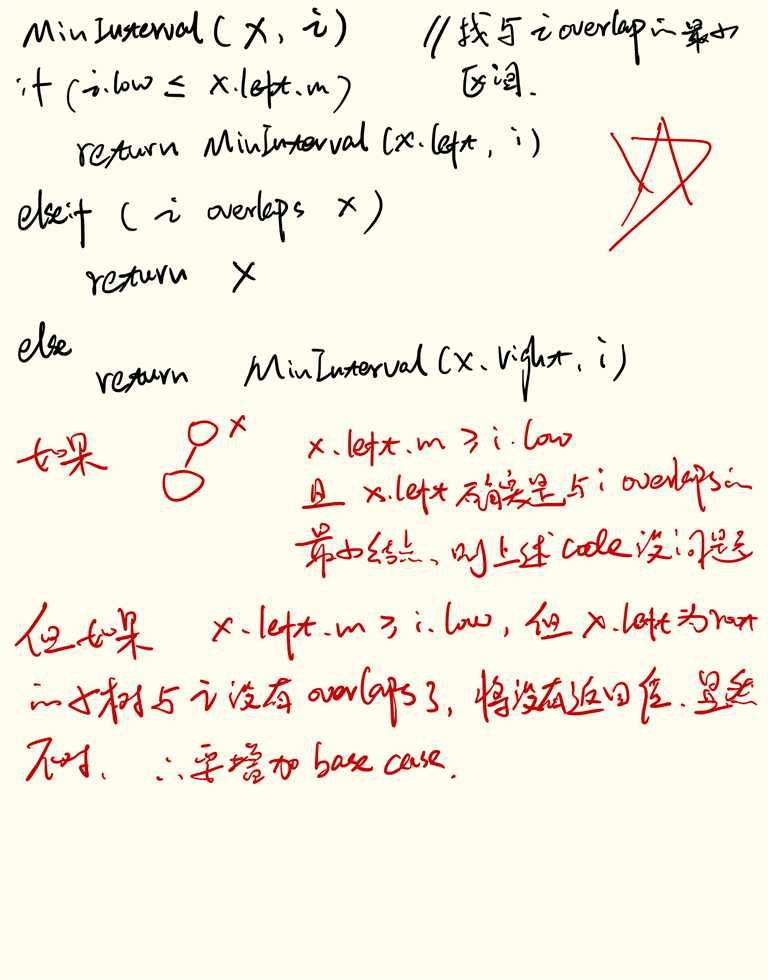 MinInterval(x, i) //找与i overlap的最小
区间.
if (i.low ≤ x.left.m)
return MinInterval(x.left, i)
elseif (i overlaps x)
return x
else
return MinInterval(x.right, i)
如果 x x.left.m ≥ i.low
且 x.left 确实是与i overlaps的
最小结点、则上述code没问题
但如果 x.left.m ≥ i.low, 但 x.left为root
的子树与i没有overlaps了, 将没有返回值. 显然
不对. ∴要增加base case.